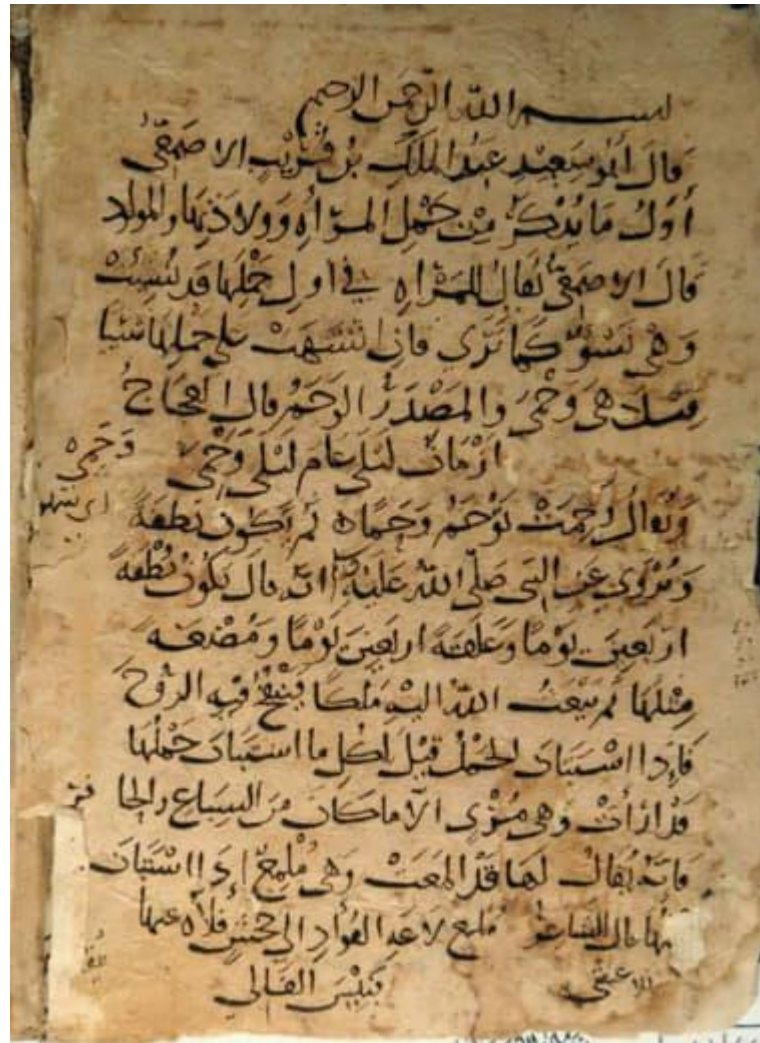 بسم الله الرحمن الرحيم
قال أبو سعيد عبد الملك بن قريب الاصمعي
أول ما يذكر من حمل المرأة وولادتها والمولود
قال الاصمعي يقال للمرأة في أول حملها قد نسئت
وهي نسوء كما ترى فإن اشتهت على حملها شيئا
قيل هي وحمى والمصدر الوحم قال العجاج
أزمان ليلى عام ليلى وحمى
وحمى
أي تشتهى
ويقال وحمت توحم وحما ثم تكون نطفة
ويروى عن النبي صلى الله عليه أنه قال يكون نطفة
اربعين يوما وعلقة اربعين يوما ومضغة
مثلها ثم يبعث الله إليه ملكا فينفخ فيه الروح
فإذا استبان الحمل قيل لكل ما استبان حملها
قد ارأت وهي مرئي الا ما كان من السباع والحا
فر
فانه يقال لها قد المعت وهي ملمع إذا استبان
قال الشاعر ملمع لاعة الفؤاد إلى جحش فلاه عنها
الاعشى
فبئس الفالي